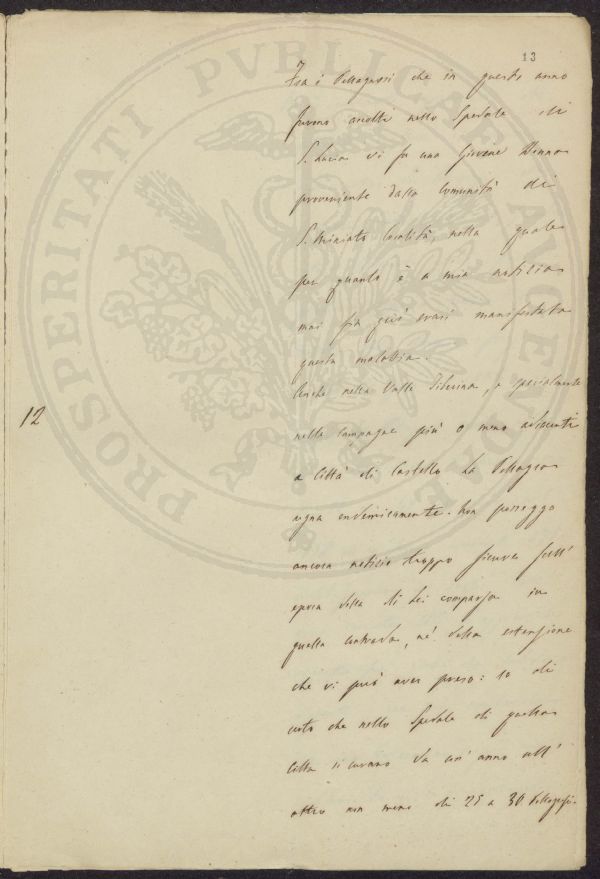 13
Fra i Pellagrosi che in questo anno
furono accolti nello Spedale di
S. Lucia vi fu una Giovane Donna
proveniente dalla Comunità di
S. Miniato località, nella quale
per quanto è a mia notizia
mai fin quì erasi manifestata
questa malattia.
Anche nella Valle Tiberina, e specialmente
nelle Campagne più o meno adiacenti
12
a Città di Castello la Pellagra
regna endemicamente. Non posseggo
ancora notizie troppo sicure sull'
epoca della di lei comparsa in
quella contrada, nè della estensione
che vi può aver preso: so di
certo che nello Spedale di quella
Città si curano da un' anno all'
altro non meno di 25 a 30 Pellagrosi.
PROSPERITATI PVBLICAE AVGENDAE